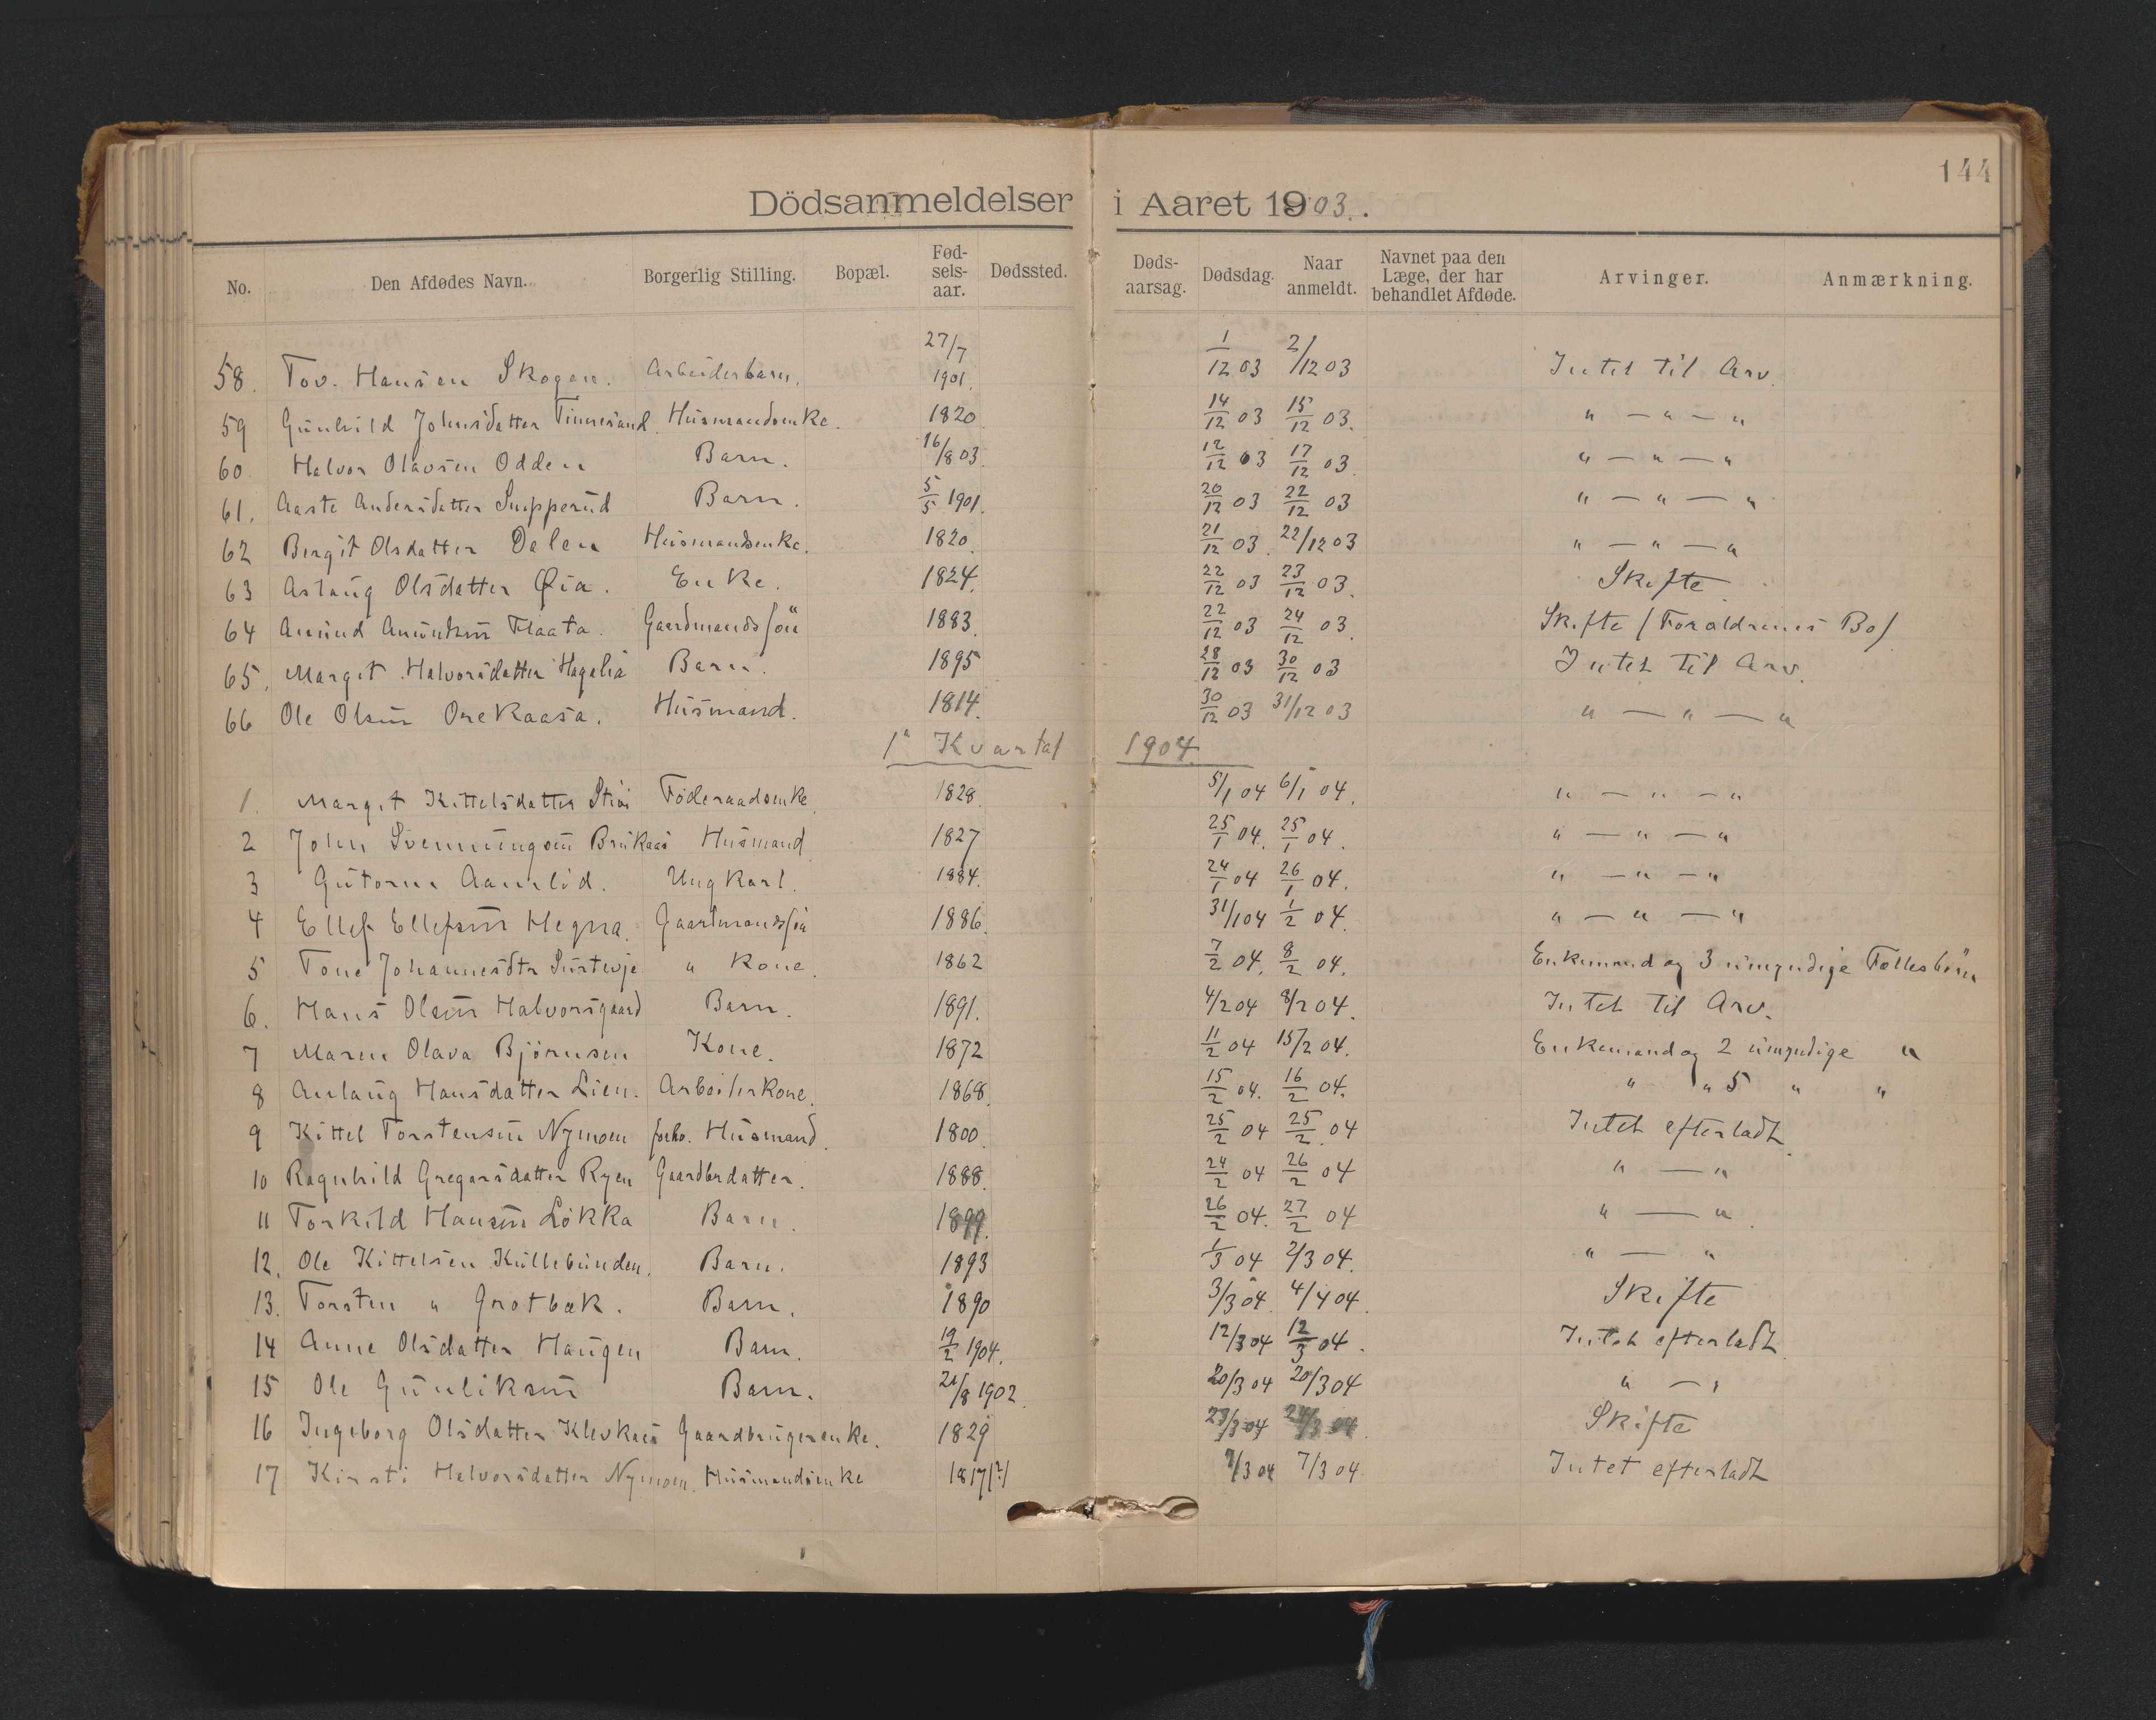 144
Dödsanmeldelser i Aaret 1903.
No. Den Afdødes Navn. Borgerlig Stilling. Bopæl. Fødselsaar. Dødssted. Dødsaarsag. Dødsdag. Naar anmeldt. Navnet paa den Læge, der har behandlet Afdøde. Arvinger. Anmærkning.
58. Tov. Hansen Skogen. Arbeiderbarn. 27/7 1901. 1/12 03 2/12 03 Intet til Arv.
59 Gunhild Johnsdatter Tinnesand. Husmandsenke. 1820 14/12 03 15/12 03. " — " — "
60 Halvor Olavsen Odden Barn. 16/8 03. 12/12 03 17/12 03. " — " — "
61. Aaste Andersdatter Barn. 5/5 1901. 20/12 03 22/12 03 " — " — "
62 Bergit Olsdatter Dalen Husmandsenke. 1820. 21/12 03. 22/12 03 " — " — "
63 Aslaug Olsdatter Øia. Enke. 1824. 22/12 03 23/12 03. Skifte
64 Amund Flaata. Gaardmandssön 1883. 22/12 03 24/12 03. Skifte / Forældrenes Bo/
65. Margit Halvorsdatter Hagalia Barn. 1895 28/12 03 30/12 03 Intet til Arv.
66 Ole Olsen Orekaasa. Husmand. 1814. 30/12 03 31/12 03 " — " — "
1ª Kvartal 1904.
1. Margit Kittelsdatter Föderaadsenke. 1828. 5/1 04 6/1 04. " — " — "
2 John Svenningsen Husmand 1827 25/1 04. 25/1 04. " — " — "
3 Gutorm Aamlid. Ungkarl. 1884. 24/1 04 26/1 04. " — " — "
4 Ellef Ellefsen Hegna. Gaardmandssön 1886. 31/1 04 1/2 04. " — " — "
5 Tone Johannesdtr " Kone. 1862 7/2 04. 8/2 04. Enkemand og 3 umyndige Fællesbörn
6. Hans Olsen Halvorsgaard Barn. 1891. 4/2 04 8/2 04. Intet til Arv.
7 Maren Olava Björnsen Kone. 1872 11/2 04 15/2 04. Enkemand og 2 umyndige "
8 Anlaug Hansdatter Lien. Arbeiderkone. 1868. 15/2 04. 16/2 04. " " 5 " "
9 Kittel Torstensen Nymoen forhv. Husmand. 1800. 25/2 04 25/2 04 Intet efterladt
10 Ragnhild Gregarsdatter Ryen Gaardbrdatter. 1888. 24/2 04 26/2 04 " — "
11 Torkild Hansen Lökka Barn. 1899. 26/2 04. 27/2 04 " — "
12. Ole Kittelsen Kullebunden. Barn. 1893 1/3 04 2/3 04. " — "
13. Torsten " Grotbæk. Barn. 1890 3/3 04. 4/4 04. Skifte
14 Anne Olsdatter Haugen Barn. 19/2 1904. 12/3 04 12/3 04. Intet efterladt
15 Ole Gunliksen Barn. 21/8 1902. 20/3 04 20/3 04 " — "
16 Ingeborg Olsdatter Klevkaas Gaardbrugerenke. 1829 23/3 04 24/3 04. Skifte
17 Kirsti Halvorsdatter Nymoen. Husmandsenke 1817/?/ 7/3 04 7/3 04. Intet efterladt